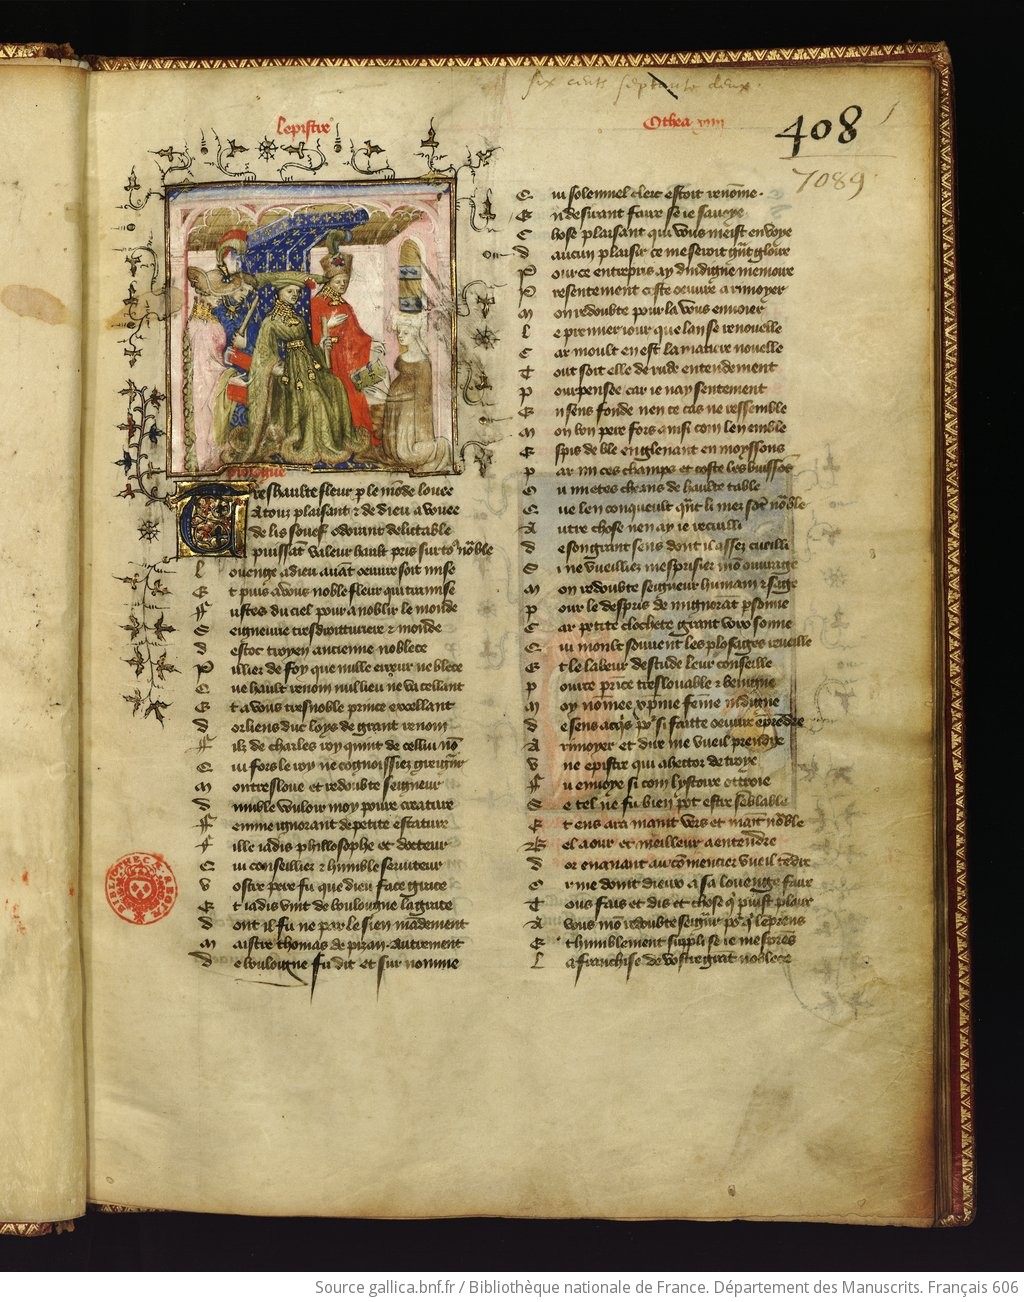 six cents septante deux.
Lepistre
Othea xiiii
408
7089
prologue
Treshaulte fleur p le mōde louee
A touz plaisant ⁊ de dieu avouee
de lis souef odorant delictable
puissāt valeur hault pris surtoꝰ noble
Louenge adieu auāt oeuure soit mise
Et puis avous noble fleur qui transmise
Fustes du ciel pour anoblir le monde
Seigneurie tresdroitturiere ⁊ monde
destoc troyen ancienne noblece
Pillier de foy que nulle erreur ne blece
Que hault renom nul lieu ne va cellant
Et a vous tresnoble prince excellant
dorliens duc loys de grant renom
Filz de charles roy quint de cellui nō
Qui fors le roy ne cognoissiez greigneur
Mon tresloue et redoubte seigneur
dumble vouloir moy poure creature
Femme ignorant de petite estature
Fille iadis philosophe et docteur
Qui conseillier ⁊ humble seruiteur
Vostre pere fu que dieu face grace
Et iadis vint de boulongne la grace
dont il fu ne par le sien mādement
Maistre thomas de pizan autrement
de boulongne fu dit et surnomme
Qui solemnel clerc estoit renōme.
En desirant faire se ie sauoye
Chose plaisant qui vous meist en voye
daucun plaisir ce me seroit grāt gloire
Pour ce entrepris ay dindigne memoire
Presentement ceste oeuure a rimoyer
Mon redoubte pour la vous enuoier
Le premier iour que lan se renouelle
Car moult en est la matiere nouelle
Tout soit elle de rude entendement
Pourpensee car ie nay sentement
En sens fonde nen ce cas ne ressemble
Mon bon pere fors ainsi com len emble
Espis de ble en glenant en moyssons
Par mi ces champs et coste les buissons
Ou mietes cheans de haulte table
Que len conqueult quāt li mez sōt nōble
Autre chose nen ay ie recueilli
de son grant sens dont il assez cueilli
Si ne vueilliez mesprisier mō ouurage
Mon redoubte seigneur humain ⁊ sage
Pour le despris de mignorāt psonne
Car petite clochete grant voix sonne
Qui moult souuent les plus sages reueille
Et le labeur destude leur conseille
Pour ce prince treslouable ⁊ benigne
Moy nōmee xpine fēme indigne
de sens acqis poꝰ si faitte oeuure ēprēdre
A rimoyer et dire me vueil prendre
Vne epistre qui a hector de troye
Fu enuoye si com lystoire ottroie
Se tel ne fu bien pot estre sēblable
Et ens ara maint vers et maīt nōble
Bel a our et meilleur a entendre
dor en auant au cōmencier vueil tēdre
Or me doint dieux a sa louenge faire
Tous fais et dis et chose q̄ puist plaire
A vous mō redoubte seigūr poꝰ q̄ le prens
Et humblement suppli se ie mesprēs
La franchise de vostre grāt noblece
BIBLIOTHECAE REGIAE
Source gallica.bnf.fr / Bibliothèque nationale de France. Département des Manuscrits. Français 606